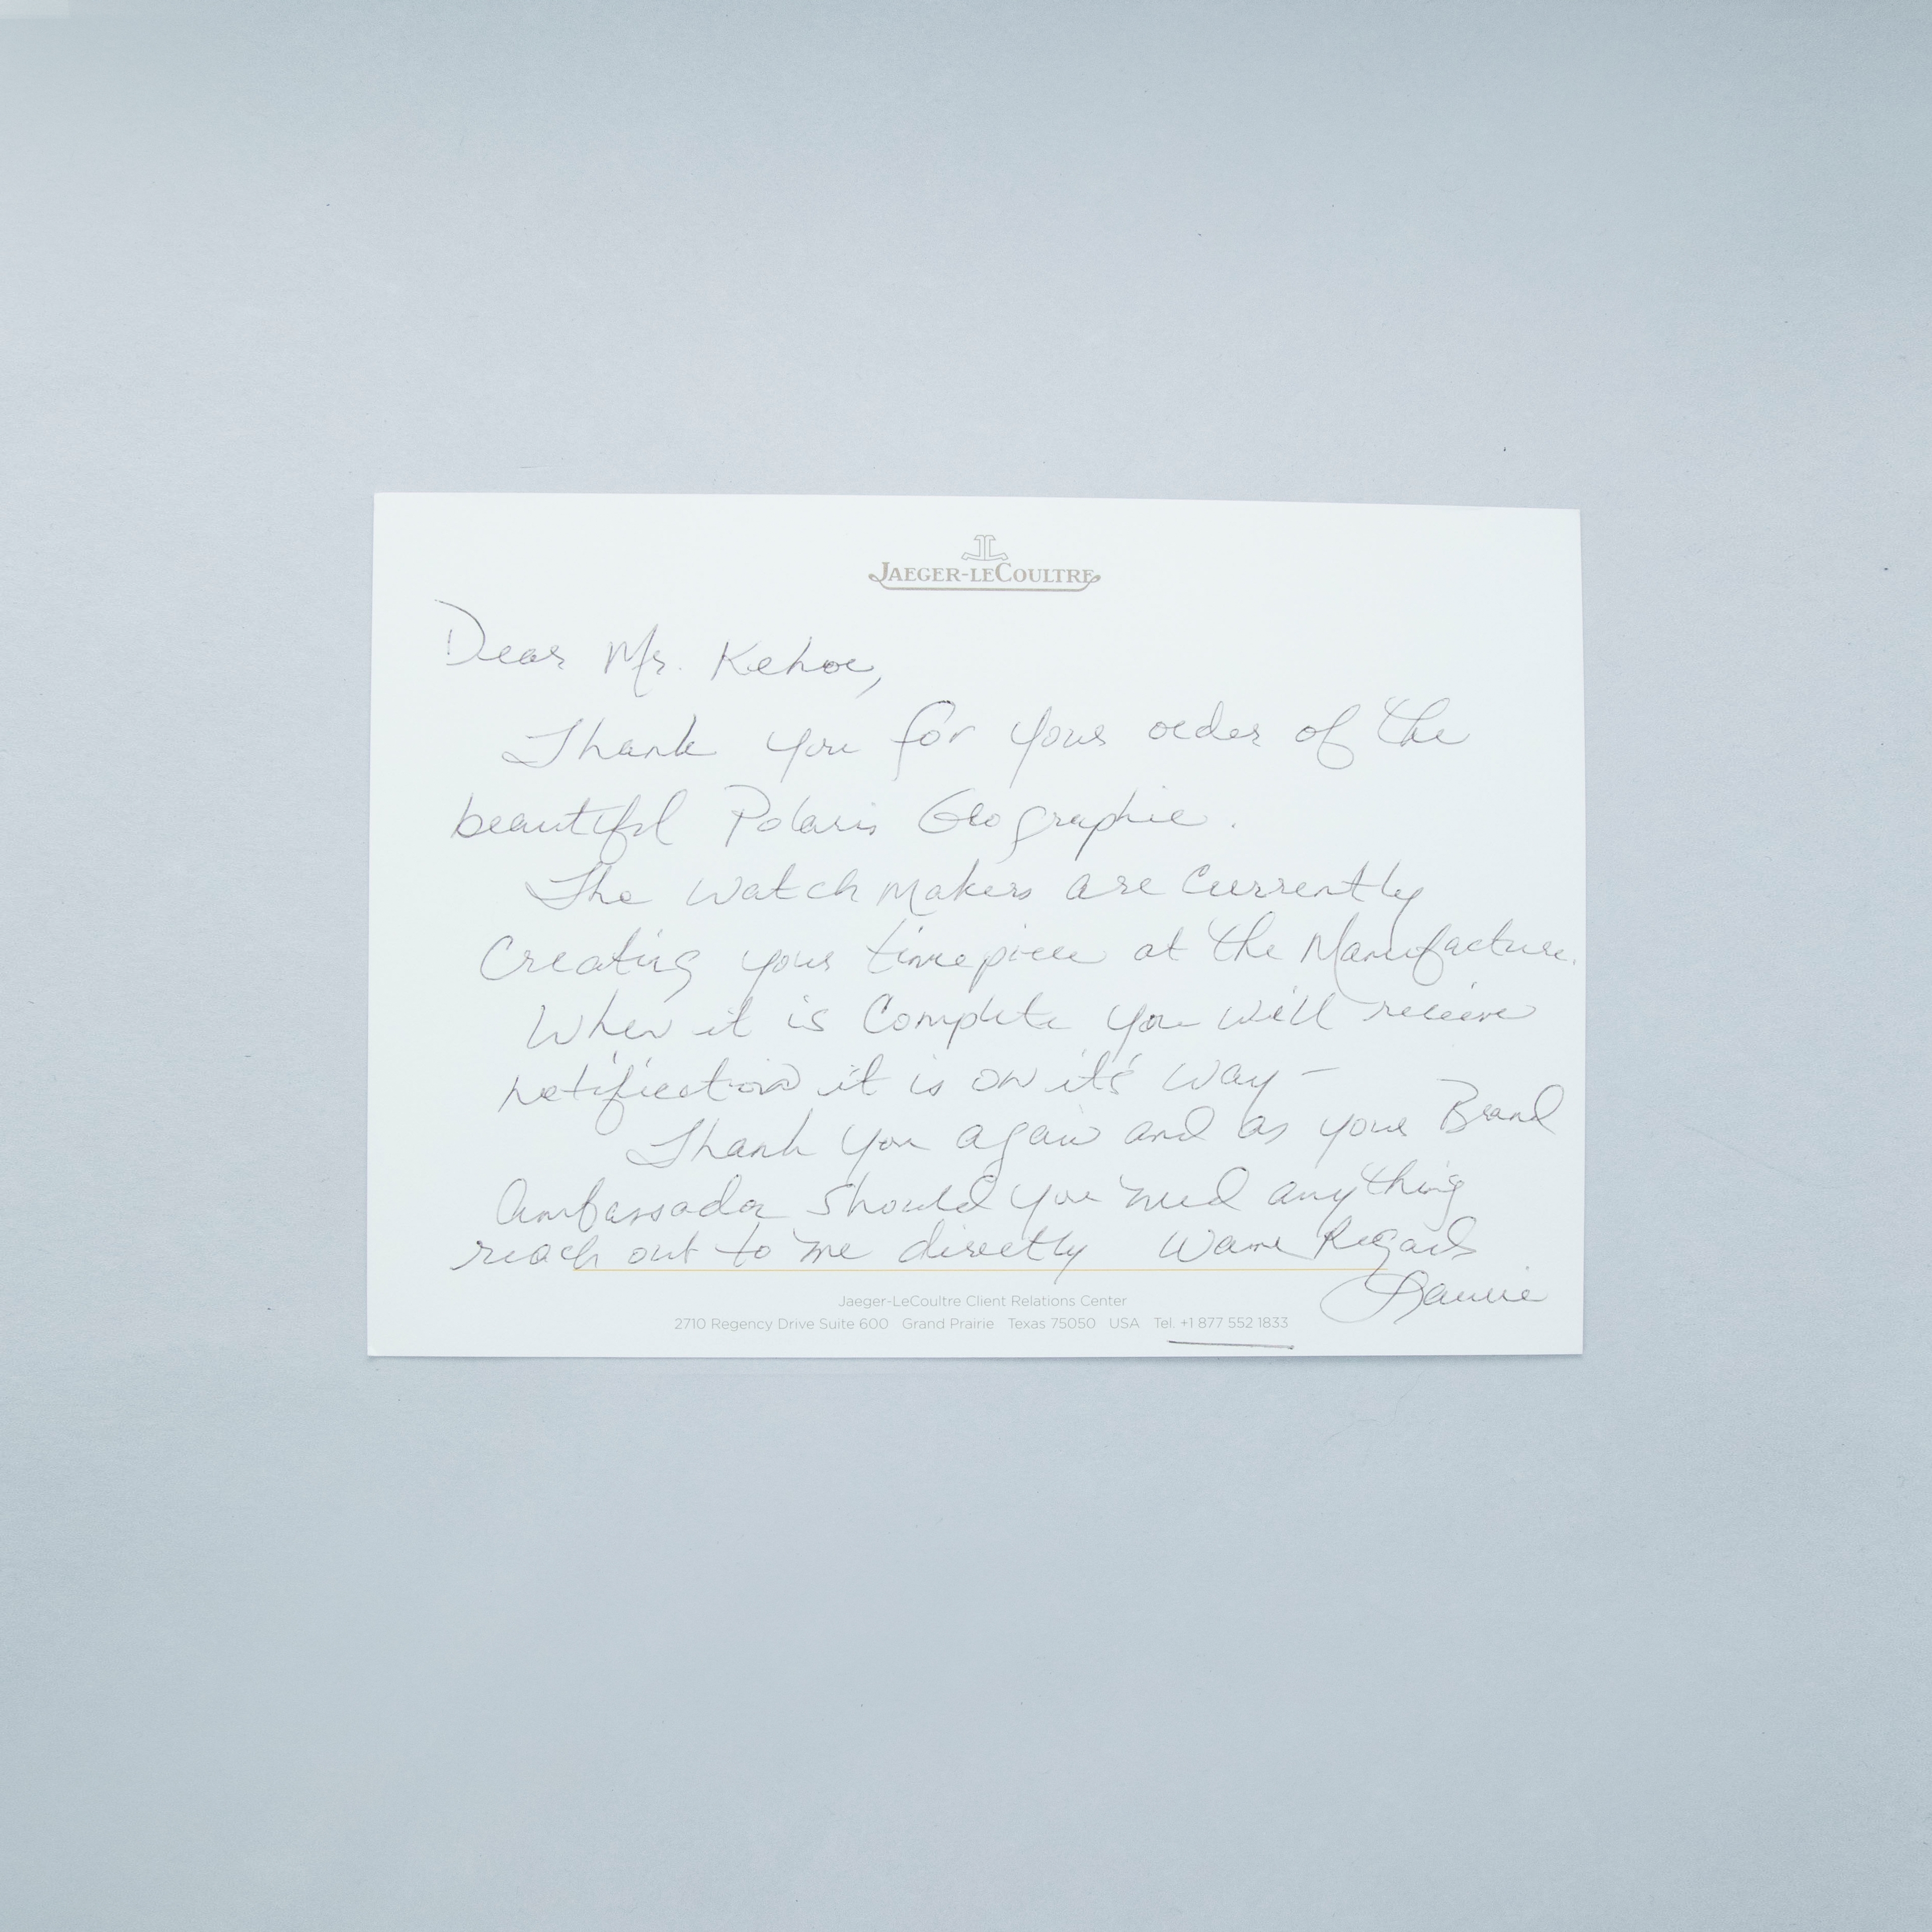 JAEGER-LECOULTRE
Dear Mr. Kehoe,
Thank you for your order of the
beautiful Polaris Geographic.
The Watch Makers are Currently
Creating your timepiece at the Manufacture.
When it is Complete you will receive
notification it is on it's way -
Thank you again and as your Brand
Ambassador should you need anything
reach out to me directly Warm Regards
Laurie
Jaeger-LeCoultre Client Relations Center
2710 Regency Drive Suite 600 Grand Prairie Texas 75050 USA Tel. +1 877 552 1833